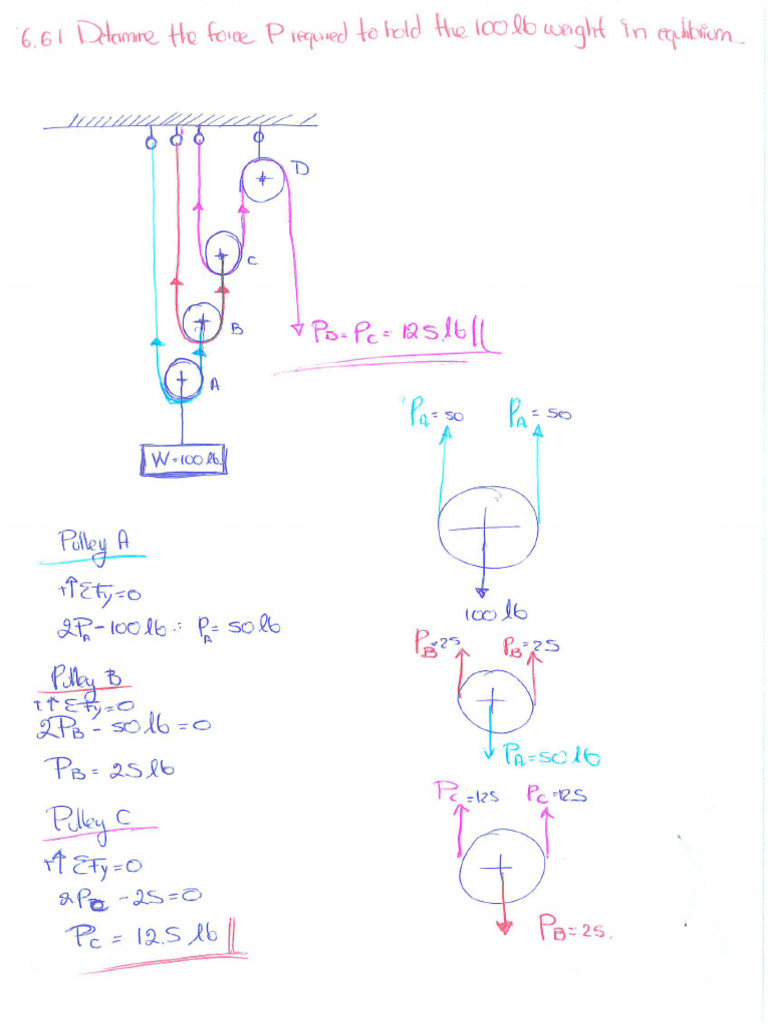 6.61 Determine the force P required to hold the 100 lb weight in equilibrium
D
C
B
A
P_D = P_C = 12.5 lb
W=100 lb.
P_A = 50 P_A = 50
100 lb
Pulley A
+↑ΣFy=0
2P_A - 100 lb ∴ P_A = 50 lb
P_B=25 P_B=25
P_A = 50 lb
Pulley B
+↑ΣFy=0
2P_B - 50 lb = 0
P_B = 25 lb
P_C=12.5 P_C=12.5
P_B = 25.
Pulley C
+↑ΣFy=0
2P_C - 25 = 0
P_C = 12.5 lb